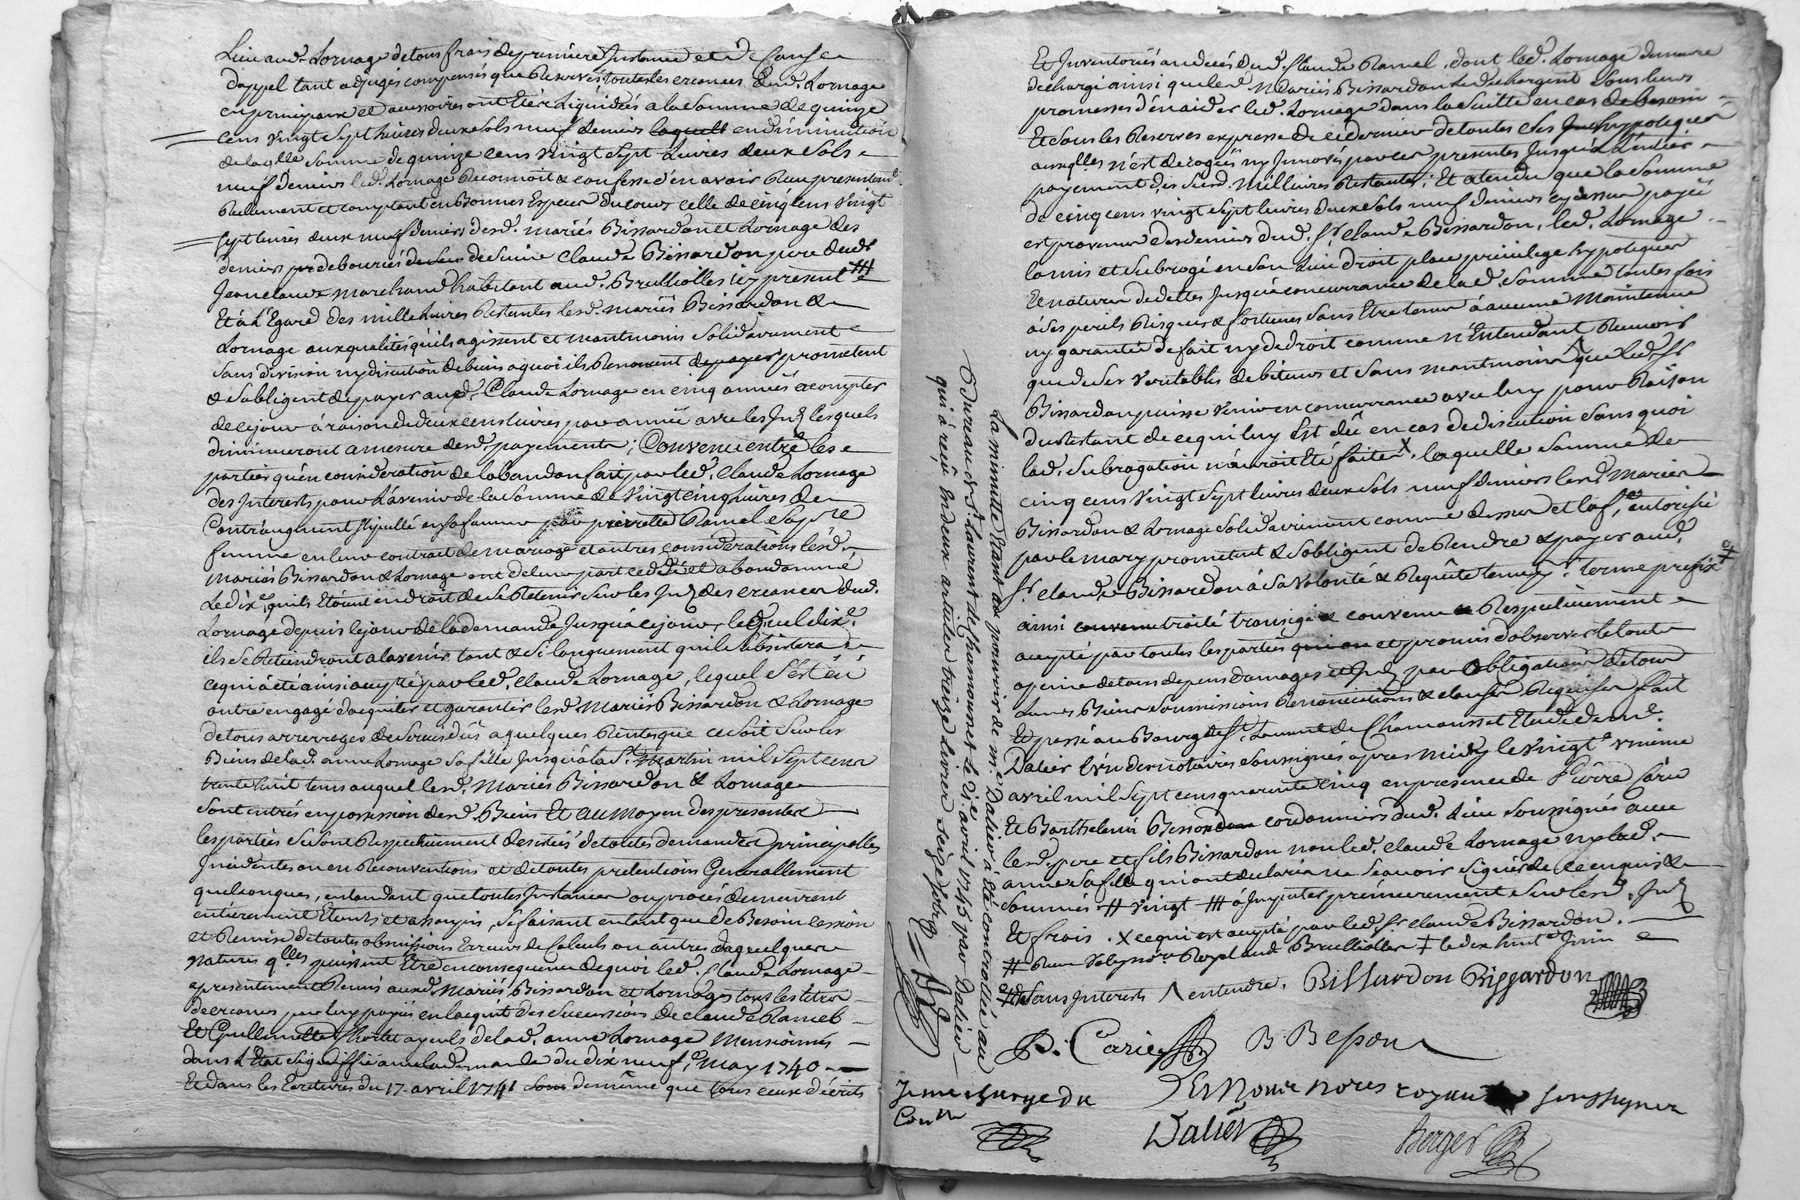 Lieu aud. Lornage de tous frais de premiere Instance et d Cause
d'appel tant adjugés compensés que Reservés, toutes les creances dud. Lornage
en principaux et accessoires ont été Liquidées a la somme de quinze
cens vingt sept livres deux sols neuf deniers laquelle en diminution
de laqlle somme de quinze cens vingt sept Livres deux sols
neuf deniers led. Lornage Reconnoit & confesse d'en avoir Reçu presentem.t
Reellement et comptant en Bonnes Especes du cours celle de cinq cens vingt
sept livres deux neuf deniers desd. mariés Bissardon et Lornage des
deniers de Claude Bissardon pere dud.
Jean claude marchand habitant aud. Brullioles icy present #
Et à L'Egard des mille livres Restantes lesd. mariés Bissardon &
Lornage aux qualités qu'ils agissent et neantmoins solidairement
sans division ny discution de biens a quoi ils Renoncent de payer prometent
& s'obligent de payer aud. Claude Lornage en cinq années a compter
de ce jour à raison de deux cens livres par année avec les Int. lesquels
diminueront a mesure desd. payements; Convenu entre les
parties qu'en consideration de l'abandon fait par led. Claude Lornage
des Interests pour L'avenir de la somme de vingt cinq livres de
L'entraugment stipullé en sa faveur par pierrette Ramel sa pre
femme en leur contrat de mariage et autres considerations lesd.
mariés Bissardon & Lornage ont de leur part cedé et abandonné
Le dix.e qu'ils étoient en droit de se Retenir sur les Int. des creances dud.
Lornage depuis le jour de la demande Jusqu'à ce jour, lequel dix.e
ils se Retiendront a l'avenir tant & si longuement qu'il subsistera
ce qui a été ainsi accepté par led. Claude Lornage, lequel s'est en
outre engagé d'acquiter et garantir lesd. Mariés Bissardon & Lornage
de tous arrerages de servis dûs a quelques Rentes que ce soit sur les
Biens de lad. anne Lornage sa fille Jusqu'à la St. Martin mil sept cens
trente huit tems auquel lesd. Mariés Bissardon & Lornage
sont entrés en possession desd. Biens Et au moyen des presentes
les parties se sont Respectivement desistés de toutes demandes principalles
Incidentes ou en Reconventions et de toutes pretentions Generallement
quelconques, entendant que toutes Instances ou procés demeurent
entierement Eteints et assoupis, se faisant en tant que de Besoin cession
et Remise de toutes obmissions Erreurs de Calculs ou autres de quelques
natures qlles puissent Etre en consequence de quoi led. Claude Lornage
a presentement Remis auxd. Mariés Bissardon et Lornage tous les titres
de creances par luy payées en l'acquit des successions de claude Ramel
Et Guillemette ayeuls de lad. anne Lornage Mensionnés
dans L'Etat signiffié avec la demande du dix neuf May 1740
Et dans les Ecritures du 17. avril 1741 sous de même que tous ceux d'écrits
Et Inventoriés au decés dud. Claude Ramel, dont led. Lornage demeure
dechargé ainsi que lesd. Mariés Bissardon le dechargent sous leurs
promesses d'en aider led. Lornage dans la suitte en cas de besoin
Et sous les Reserves expresse de ce dernier de toutes ses hypoteques
auxqlles n'est derogés ny Innovés par ces presentes Jusqu'à L'entier
payement des susd. mille livres Restantes; Et atendu que la somme
de cinq cens vingt sept livres deux sols neuf deniers cy dessus payée
est provenue des deniers dud. Sr. claude Bissardon, led. Lornage
la mis et subrogé en son Lieu droit place privilege hypoteques
Et nature de dettes Jusqu'à concurrance de lad. somme toutes fois
à ses perils Risques & fortunes sans Etre tenu à aucune Maintenue
ny garantie de fait ny de droit comme n'Entendant Recevoir
que de ses veritables debiteurs et sans neantmoins que led. Sr
Bissardon puisse venir en concurrance avec luy pour Raison
du restant de ce qui luy Est dû en cas de discution sans quoi
lad. subrogation n'auroit Eté faite X, laquelle somme de
cinq cens vingt sept livres deux sols neuf deniers lesd. Mariés
Bissardon & Lornage solidairement comme dessus et la fe. autorisée
par le mary prometent & s'obligent de Rendre & payer aud.
Sr. claude Bissardon à sa volonté & Requête terme prefix
ainsi convenu traité transigé & convenu & Respectivement
accepté par toutes les parties qui on et promis d'observer le tout
a peine de tous depens domages et Int. par obligations de tous
Leurs Biens soumissions Renonciations & clauses Requises fait
Et passé au Bourg de St. Laurent de Chamousset Etude de me.
Dalier L'un des notaires soussignés apres midy le vingt unieme
avril mil sept cens quarente cinq en presence de Pierre Carie
Et Barthelemi Besson cordonniers dud. Lieu soussignés avec
lesd. pere et fils Bissardon non led. claude Lornage ny lad.
anne sa fille qui ont declaré ne sçavoir signer de ce enquis &
sommés. # vingt # à Imputer premierement sur lesd. Int
Et frais. X ce qui est accepté par led. Sr claude Bissardon.
# Royal aud Brullioles ‡ le dix huit Juin
sans Interests /\ entendre. Bissardon Bissardon
P. Carie B Besson
Les Nome nores royaux soussignes
Dalier
Berger
La minutte Etant au pouvoir de Me. Dalier à été controllée au
Bureau de St. Laurent de Chamousset le 21e. avril 1745 par Dalier
qui à reçu en deux articles treize livres seize sols
Je me charge du
Con.lle